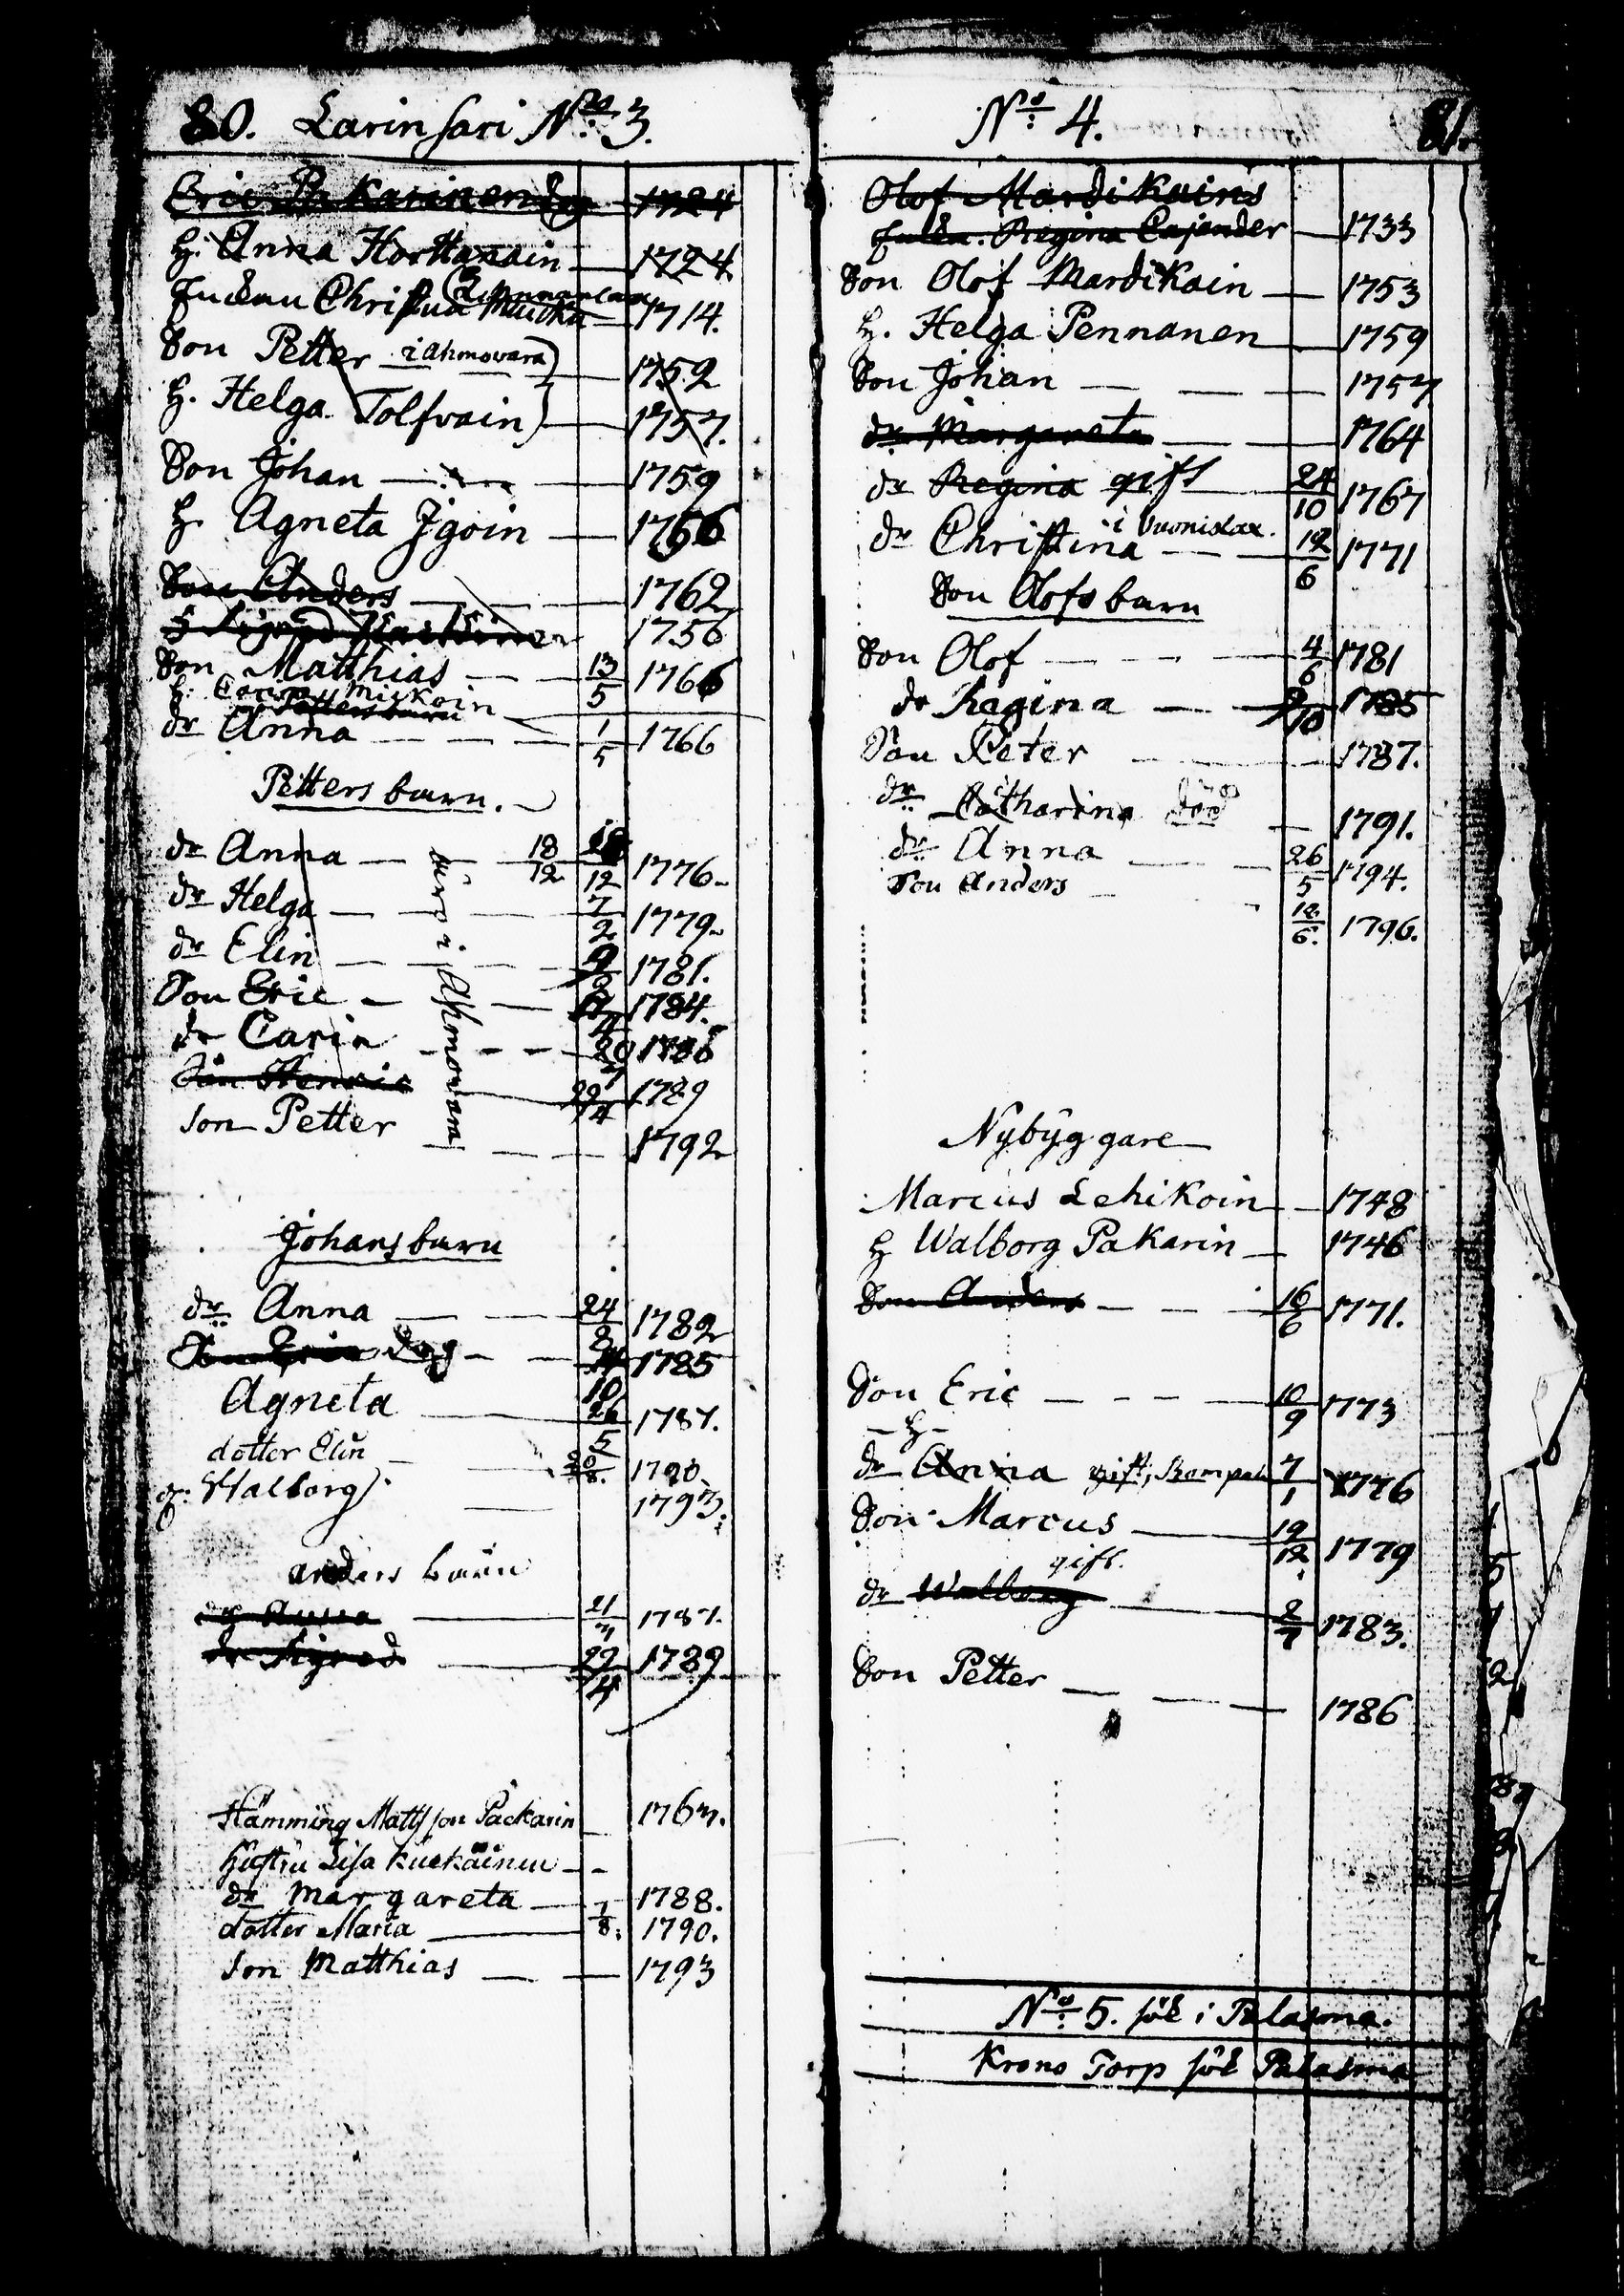 80. Larinsari No 3.
Eric Pakarinen dog 1724
h. Anna Horttanain 1724
Enckan Christina 1714.
Son Petter i Ahmovara) 1752
h. Helga Tolfvain) 1757.
Son Johan 1759
h. Agneta Igoin 1756
Son Anders 1762
1756
Son Matthias 13/5 1766
h. Miskoin
dr Anna 1/5 1766
Petters barn.
dr Anna 18/12 12 1776
dr Helga 7/2 1779
dr Elin 1781.
Son Eric 1784.
dr Carin 1786
Son Henric 22/4 1789
son Petter 1792
bor i Ahmovara
Johans barn
dr Anna 24/2 1782
Son Eric dog 1785
Agneta 26/5 1787.
dotter Elin 1790.
Walborg 1793.
anders barn
dr Anna 21/7 1787.
dr Sigred 22/4 1789
Hämming Mattsson Packarin 1763.
hustru Lisa
dr Margareta 1788.
dotter Maria 1/8. 1790.
son Matthias 1793
No 4. 81.
Olof Mardikains
Enkan. Regina Cajander 1733
Son Olof Mardikain 1753
h. Helga Pennanen 1759
Son Johan 1757
dr Margareta 1764
dr Regina gift 24/10 1767
i Vuonislax.
dr Christina 12/6 1771
Son Olofs barn
Son Olof 4/6 1781
dr Regina 1785
Son Peter 1787.
dr Catharina död 1791.
dr Anna 26/5 1794.
Son Anders 12/6. 1796.
Nybyggare
Marcus Lehikoin 1748
h Walborg Pakarin 1746
Son Anders 16/6 1771.
Son Eric 10/9 1773
h
dr Anna gift, 7/1 1776
Son Marcus 19/12 1779
gift.
dr Walborg 2/7 1783.
Son Petter 1786
No 5. sök i Palasma.
Krono Torp sök Palasma